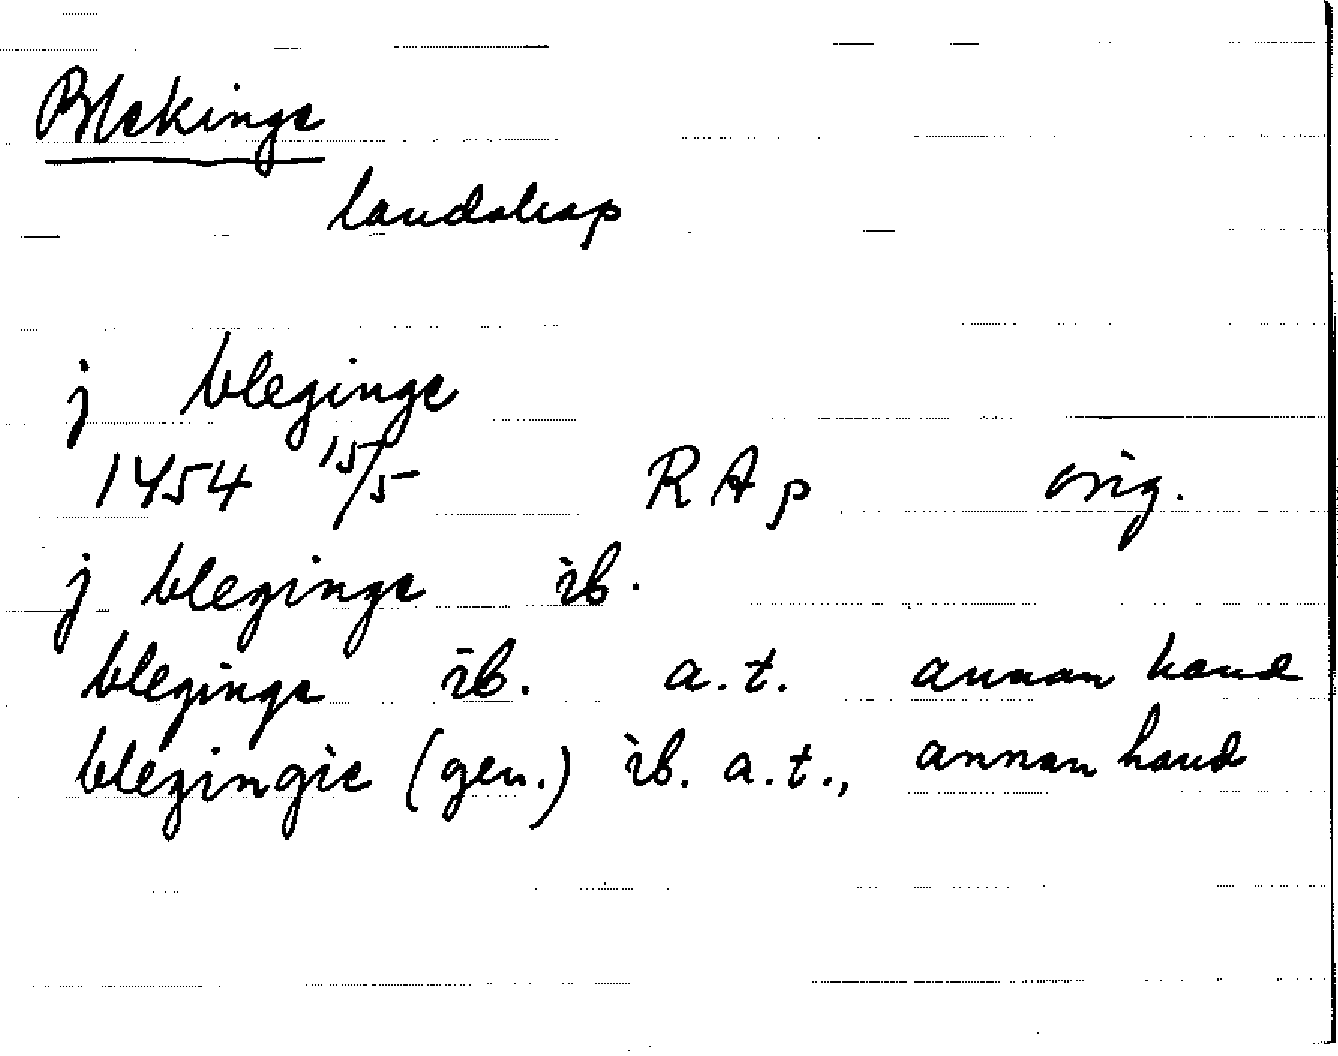 Blekinge
landskap
j bleginge
1454 15/5 RAp orig.
j bleginge ib.
bleginge ib. a.t. annan hand
blegingie (gen.) ib. a.t., annan hand